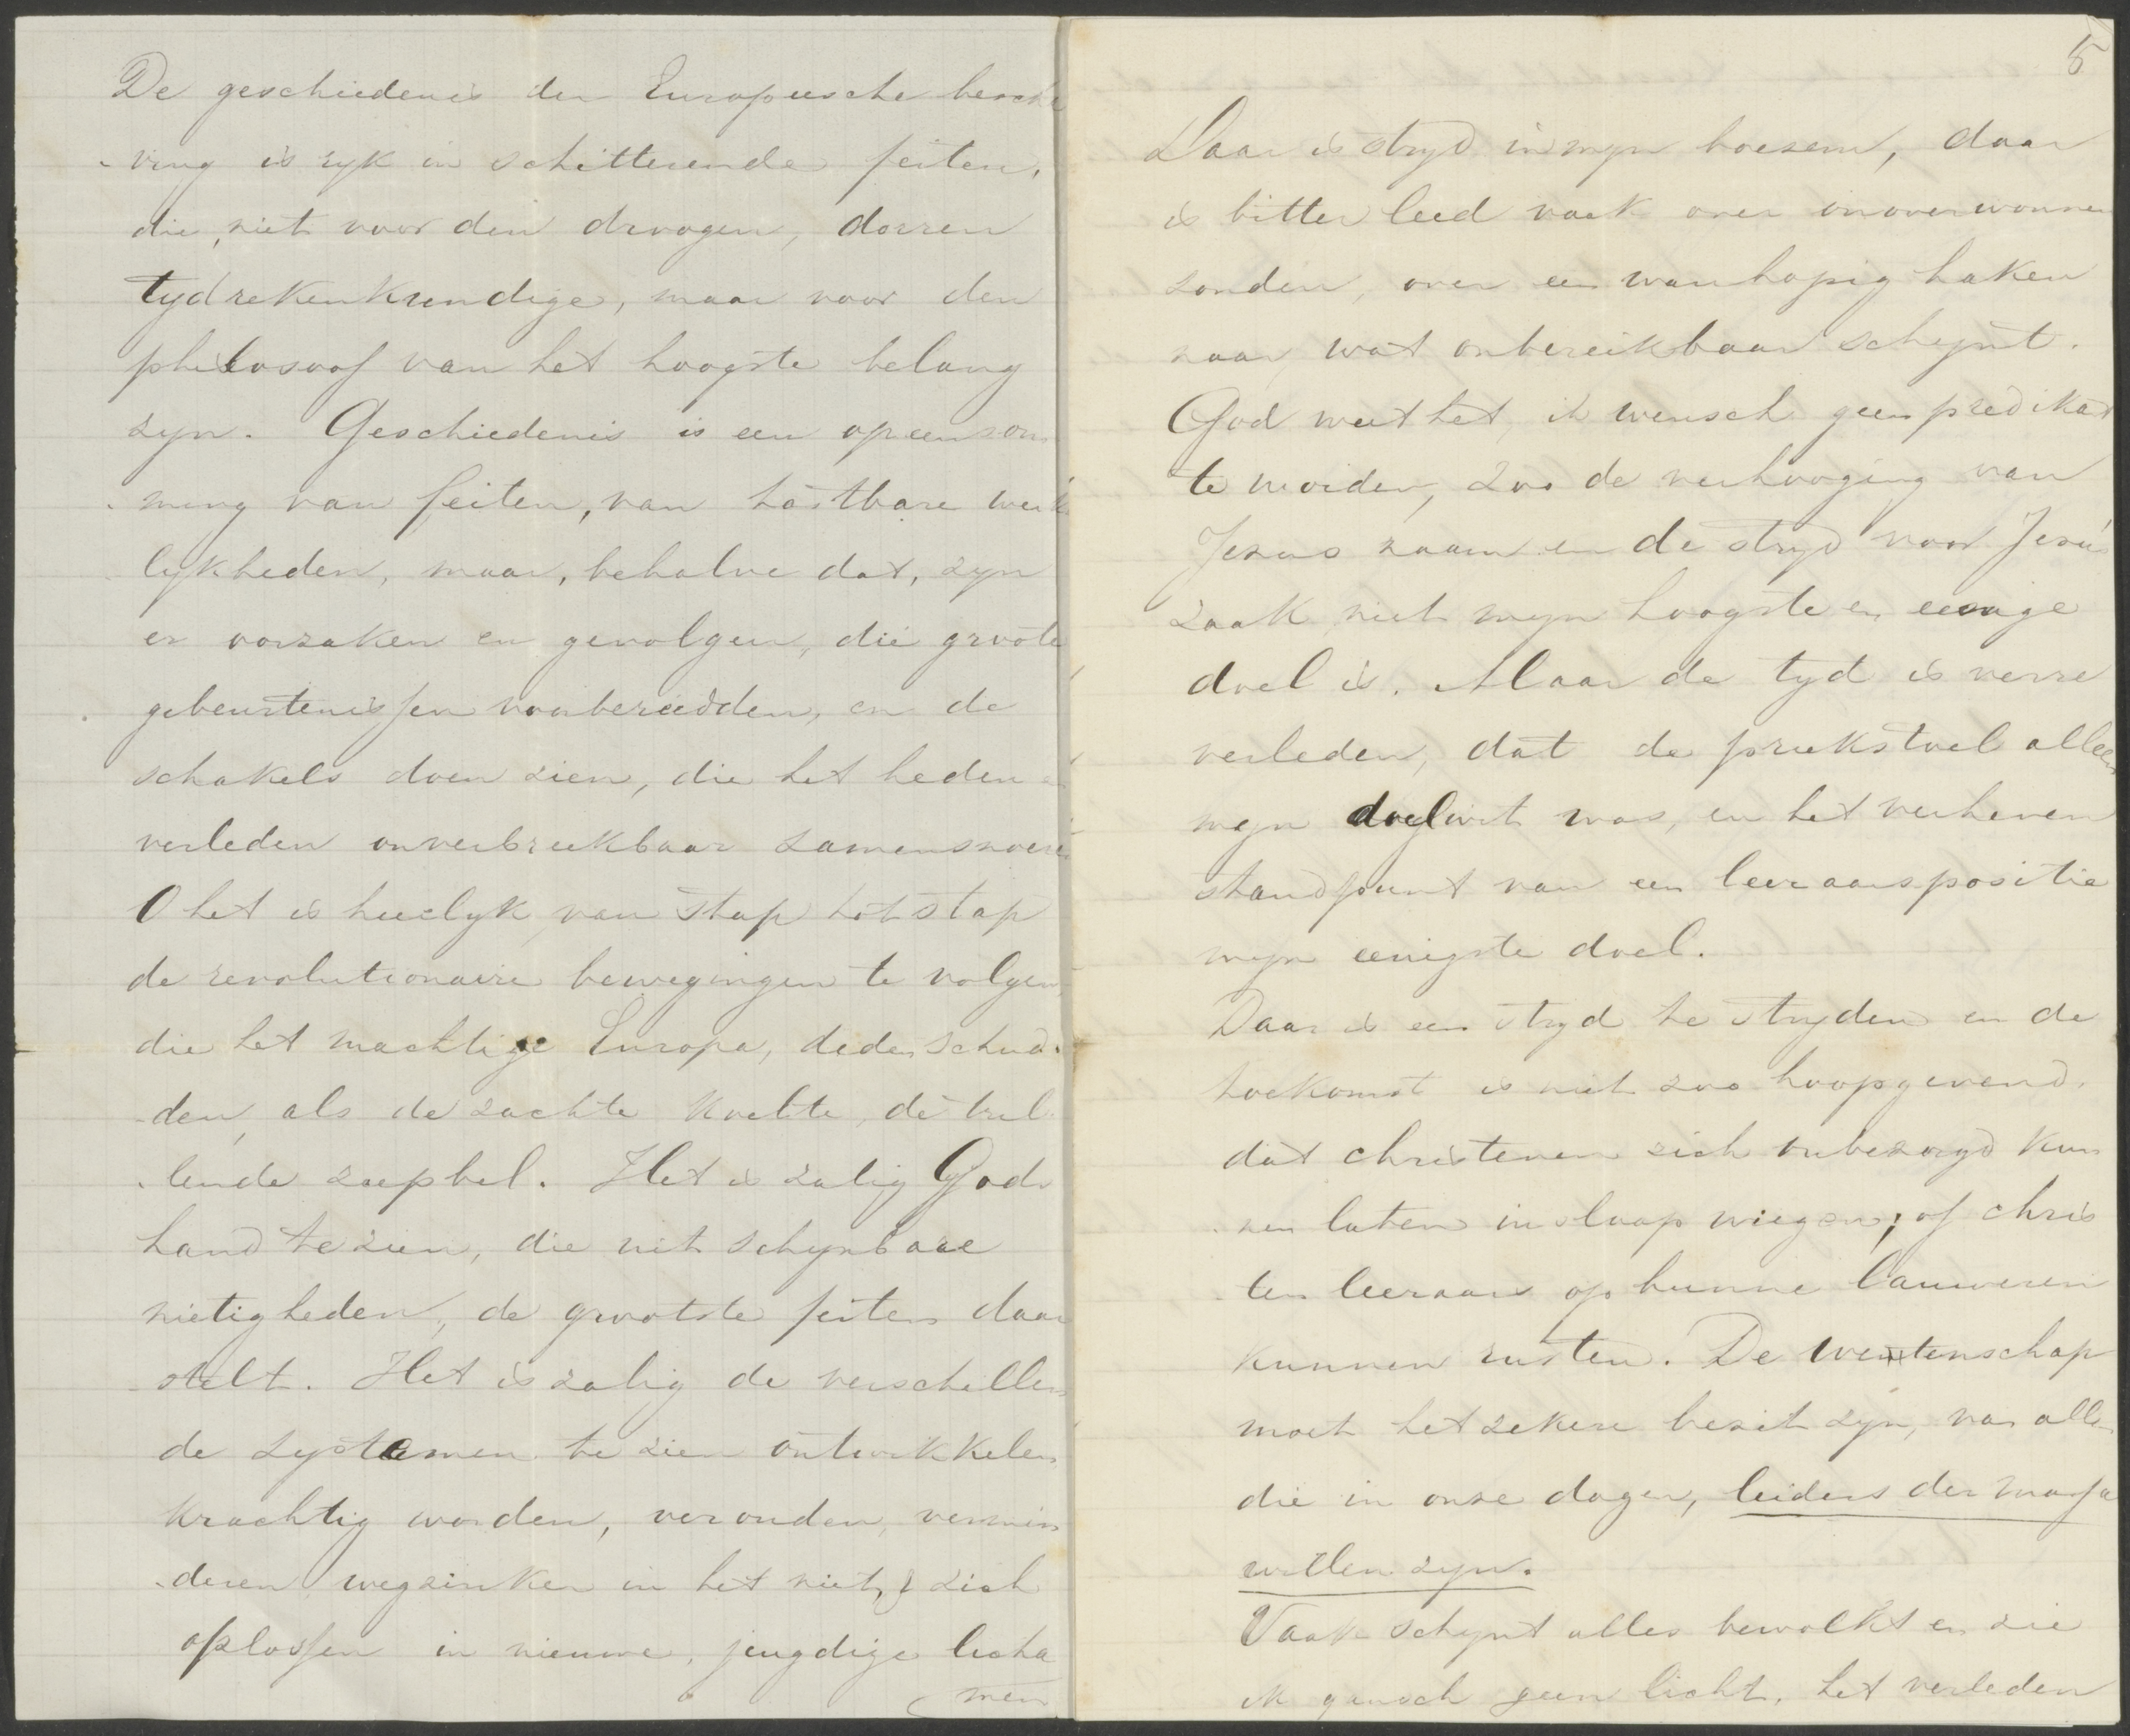 De geschiedenis der Europeesche bescha
-ving is ryk in schitterende feiten,
die, niet voor den droogen, dorren
tydrekenkundige, maar voor den
philosoof van het hoogste belang
zyn. Geschiedenis is een opeensom
-ming van feiten, van tastbare werke
lykheden, maar, behalve dat, zyn
er oorzaken en gevolgen, die groote
gebeurtenissen voorbereidden, en de
schakels doen zien, die het heden en
verleden onverbreekbaar samensnoeren
O het is heerlyk, van stap tot stap
de revolutionaire bewegingen te volgen,
die het machtige Europa, deden schud-
-den, als de zachte koelte, de tril-
-lende zeepbel. Het is zalig Gods
hand te zien, die uit schynbare
nietigheden, de grootste feiten daar
-stelt. Het is zalig de verschillen
de systemen te zien ontwikkelen
krachtig worden, verouden, vermin
-deren wegzinken in het niet, & zich
oplossen in nieuwe, jeugdige licha
men
5
Daar is stryd in myn boezem, daar
is bitter leed vaak over onoverwonnen
zonden, over een wanhopig haken
naar, wat onbereikbaar schynt.
God weet het, ik wensch geen predikant
te worden, zoo de verhooging van
Jezus naam en de stryd voor Jezus
zaak niet myn hoogste en eenige
doel is. Maar de tyd is verre
verleden, dat de preekstoel alleen
myn doelwit was, en het verheven
standpunt van een leeraarspositie
myn eenigste doel.
Daar is een stryd te stryden en de
toekomst is niet zoo hoopgevend,
dat christenen zich onbezorgd kun
-nen laten in slaap wiegen; of chris
-ten leeraars op hunne lauweren
kunnen rusten. De wetenschap
moet het zekere bezit zyn, van allen
die in onze dagen, leiders der massa
willen zyn.
Vaak schynt alles bewolkt en zie
ik genoeh geen licht, het verleden